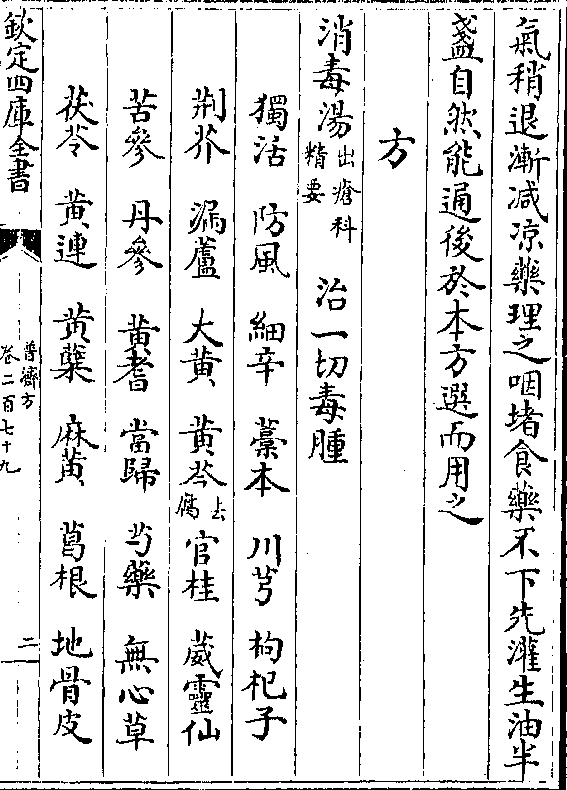 氣稍退漸减凉藥理之咽堵食藥不下先灌生油半
盞自然能通後於本方選而用之
方
消毒湯出瘡科精要 治一切毒腫
獨活 防風 細辛 藁本 川芎 枸杞子
荆芥 漏蘆 大黄 黄芩去腐 官桂 葳靈仙
苦參 丹參 黄耆 當歸 芍藥 無心草
茯苓 黄連 黄蘗 麻黄 葛根 地骨皮
欽定四庫全書
普濟方
卷二百七十九
二